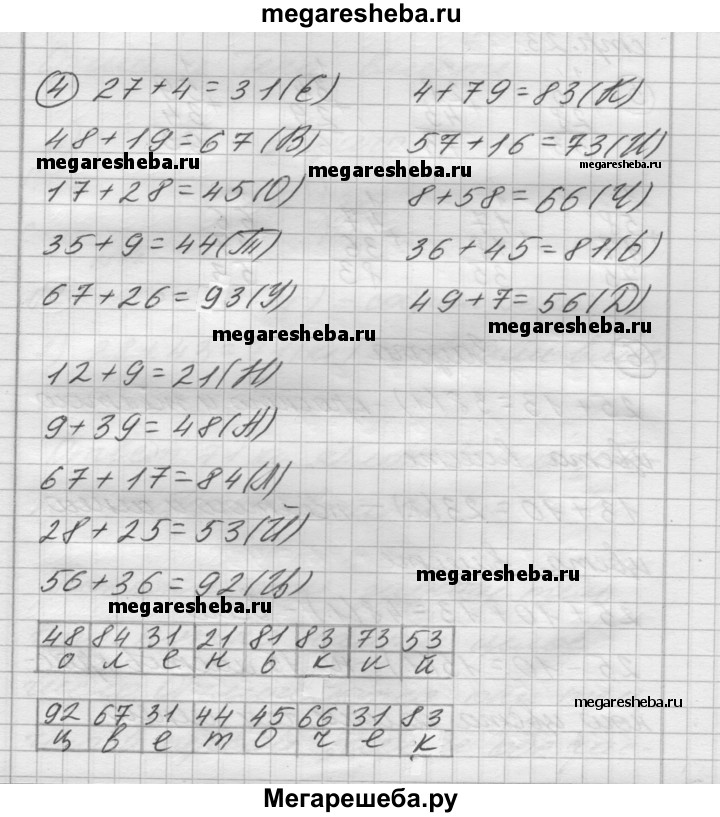 megaresheba.ru
④ 27+4=31(Е) 4+79=83(К)
48+19=67(В) 57+16=73(И)
megaresheba.ru megaresheba.ru megaresheba.ru
17+28=45(О) 8+58=66(Ч)
35+9=44(Т) 36+45=81(Ь)
67+26=93(У) 49+7=56(Д)
megaresheba.ru megaresheba.ru
12+9=21(Н)
9+39=48(А)
67+17=84(Л)
28+25=53(Й)
56+36=92(Ц)
megaresheba.ru megaresheba.ru
48 84 31 21 81 83 73 53
о л е н ь к и й
megaresheba.ru
92 67 31 44 45 66 31 83
ц в е т о ч е к
Мегарешеба.ру